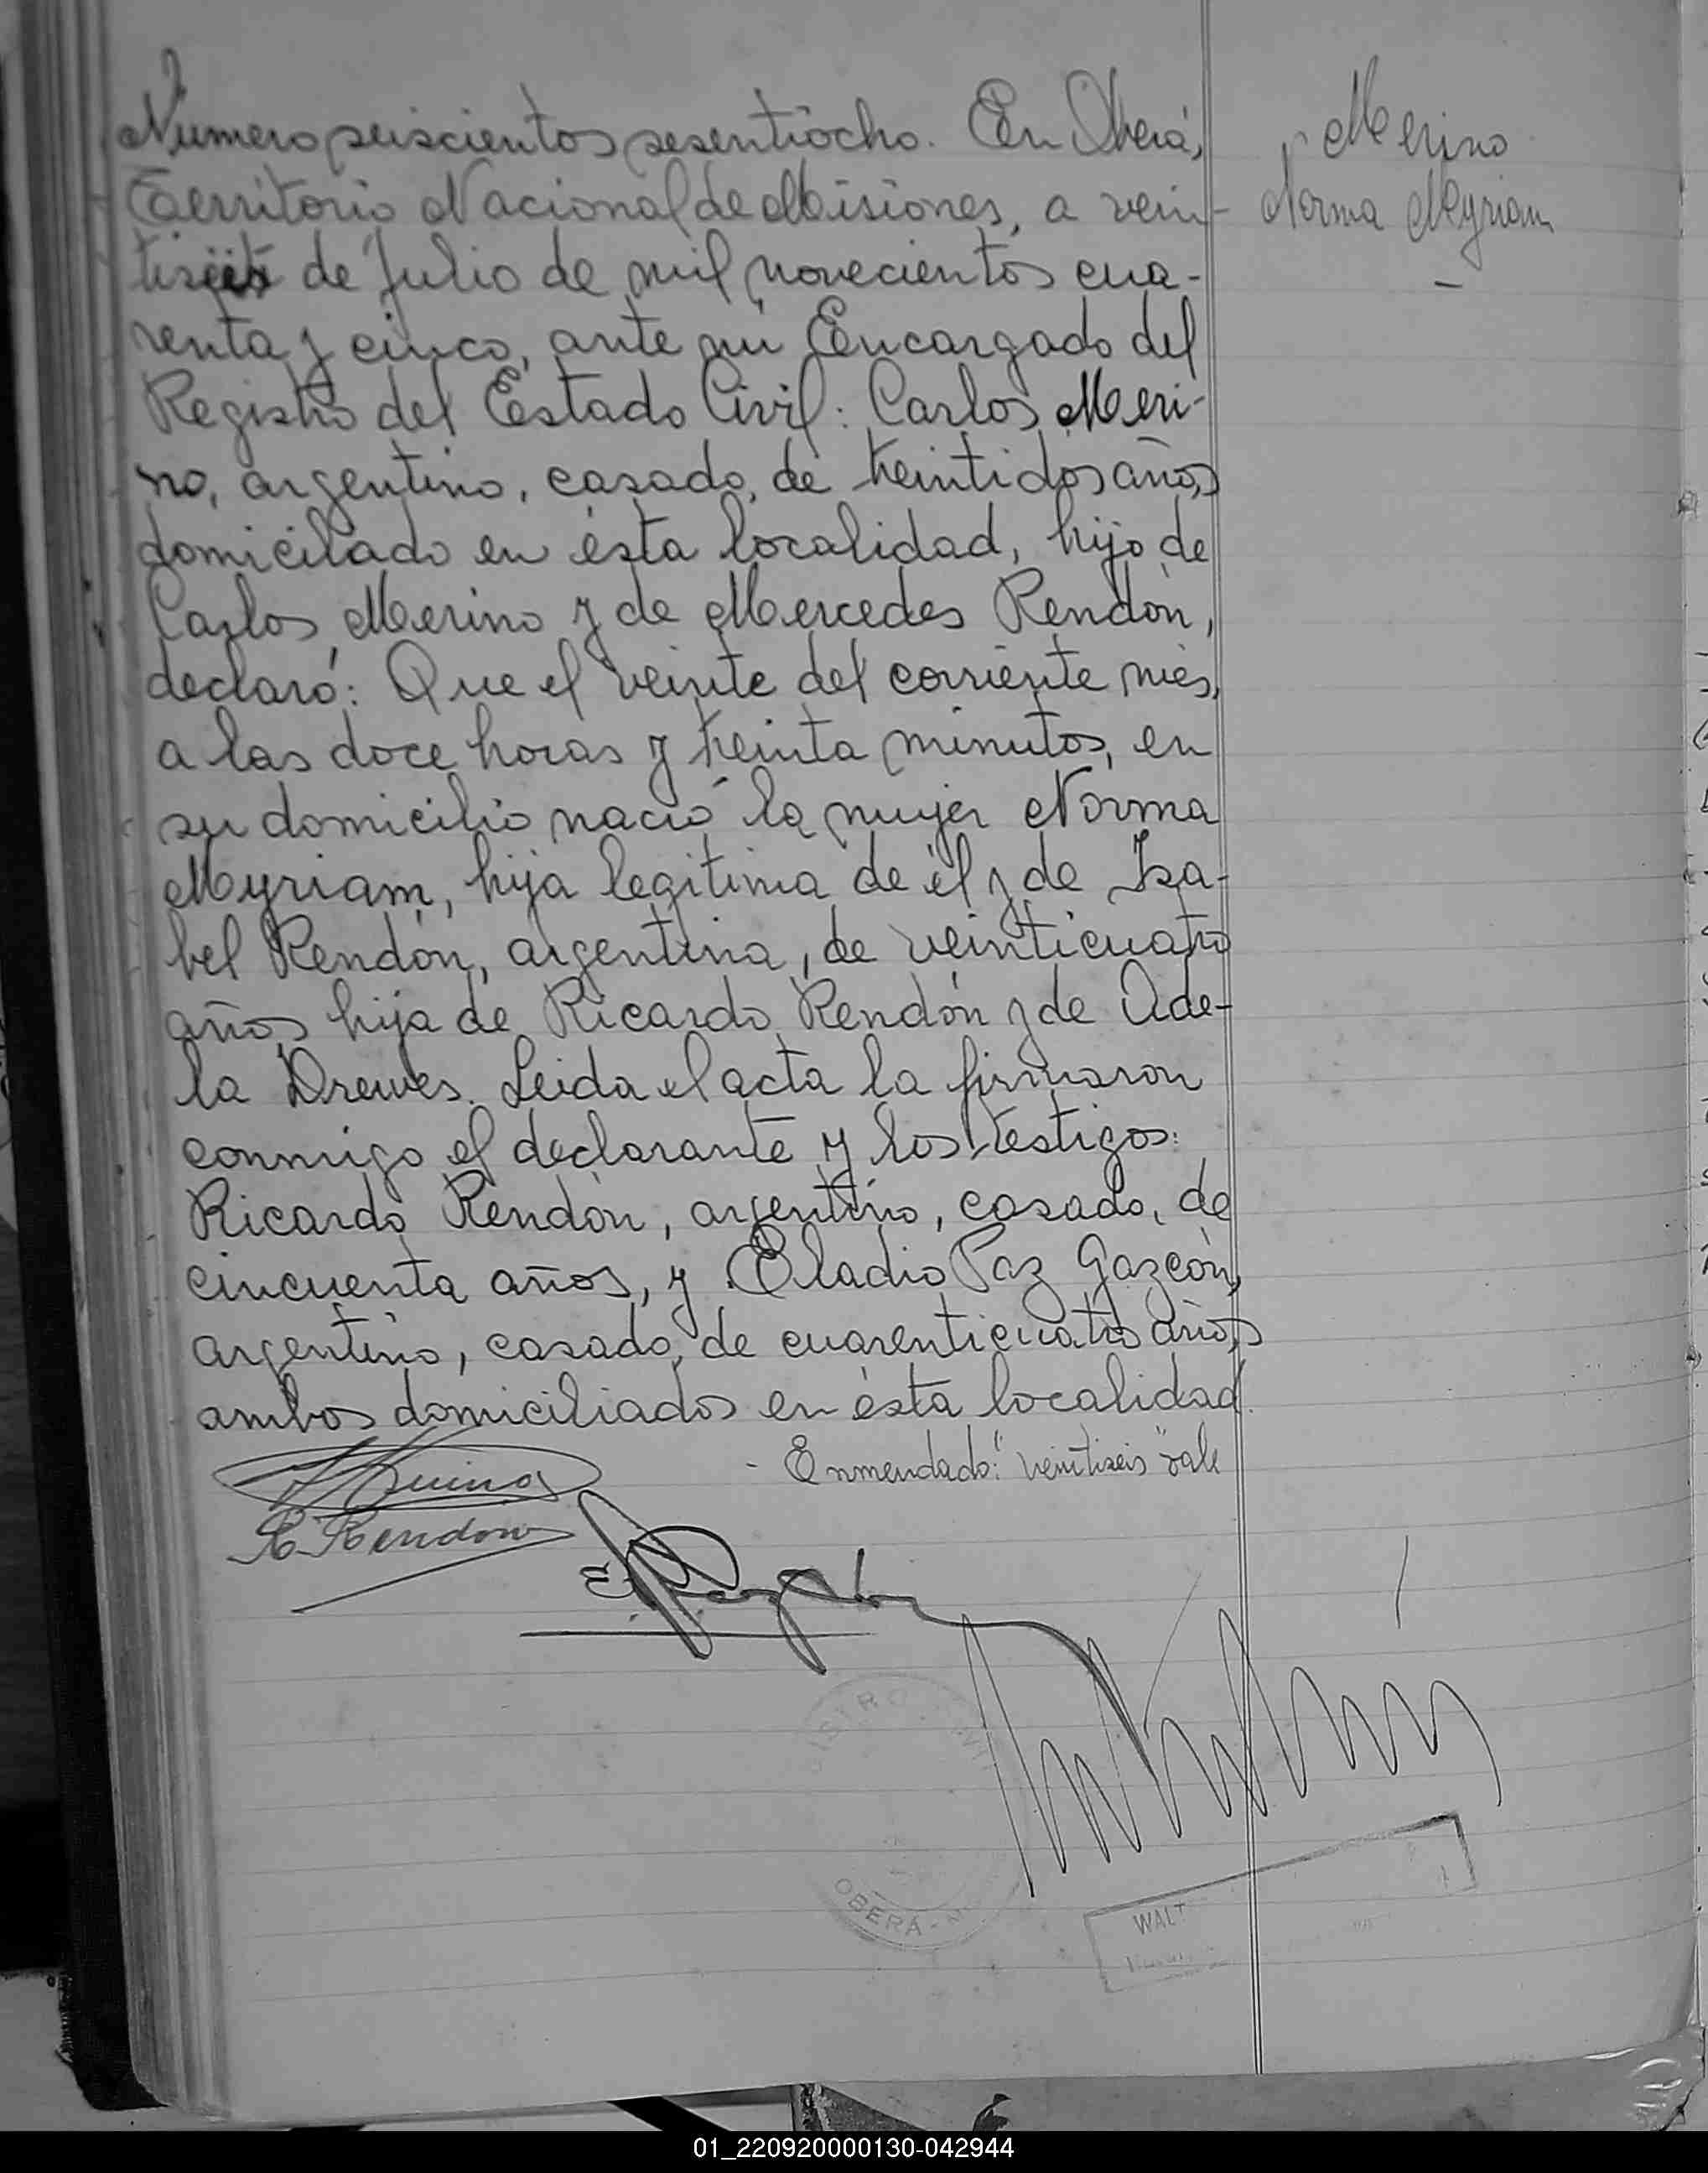 Número seiscientos sesentiocho. En Oberá,
Territorio Nacional de Misiones, a vein-
tiseis de Julio de mil novecientos cua-
renta y cinco, ante mi Encargado del
Registro del Estado Civil: Carlos Meri-
no, argentino, casado, de treintidos años,
domicilado en ésta localidad, hijo de
Carlos Merino y de Mercedes Rendón,
declaró: Que el veinte del corriente mes,
a las doce horas y treinta minutos, en
su domicilio nació la mujer Norma
Myriam, hija legitima de él y de Isa-
bel Rendón, argentina, de veinticuatro
años, hija de Ricardo Rendón y de Ade-
la Drewes. Leida el acta la firmaron
conmigo el declarante y los testigos:
Ricardo Rendón, argentino, casado, de
cincuenta años, y Eladio Paz Gazcón,
argentino, casado, de cuarenticuatro años,
ambos domiciliados en ésta localidad.
- Enmendado: "veintiseis" vale
Merino
Norma Myriam
R. Rendon
OBERÁ -
WALT
01_220920000130-042944